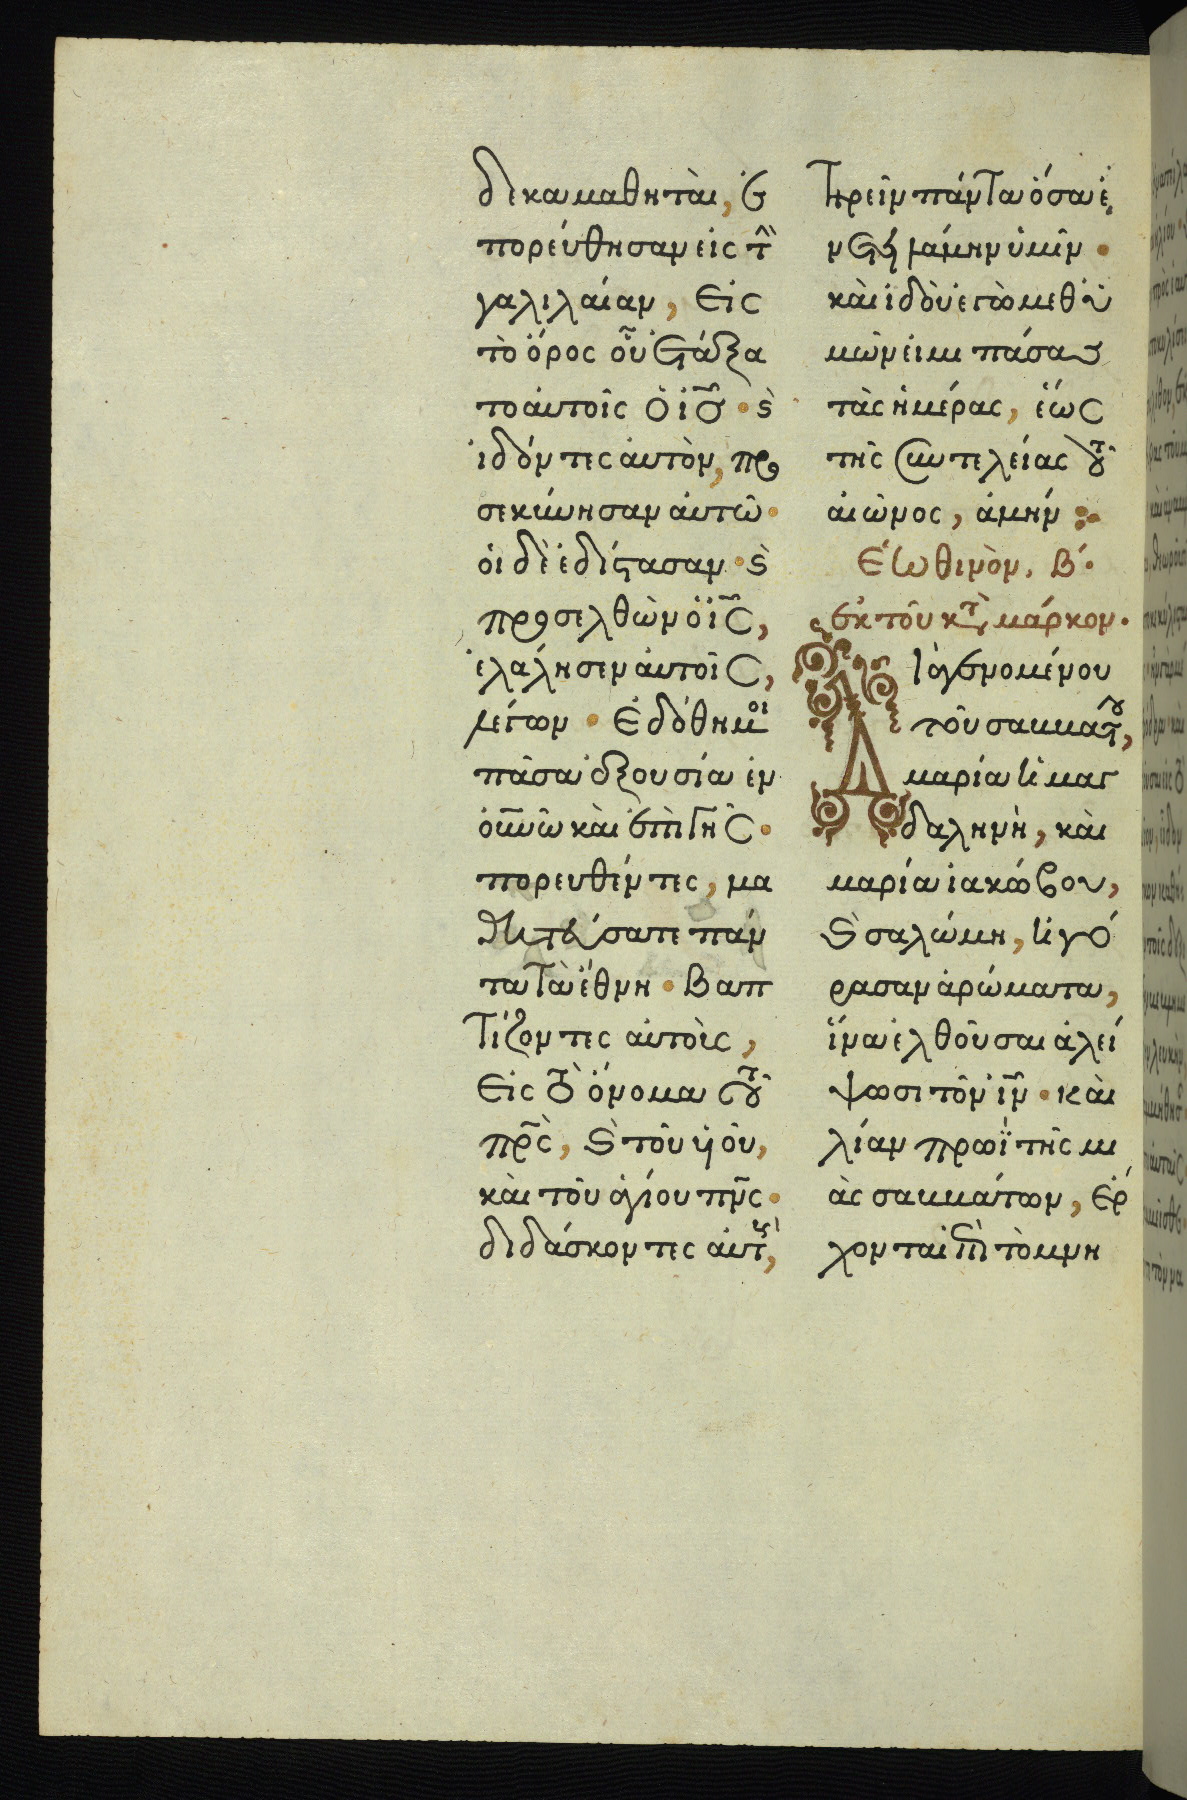 δεκα μαθηταὶ, ἐ
πορεύθησαν εἰς τὴν
γαλιλαίαν, εἰς
τὸ ὄρος οὗ ἐτάξα
το αὐτοῖς ὁ ἰς̅ · ϗ
ἰδόντες αὐτὸν, προ
σεκύνησαν αὐτῶ ·
οἱ δὲ ἐδίστασαν · ϗ
προσελθὼν ὁ ἰς̅,
ἐλάλησεν αὐτοῖς,
λέγων · ἐδόθη μοι
πᾶσα ἐξουσία ἐν
οὐν̅ῶ καὶ ἐπὶ γῆς ·
πορευθέντες, μα
θητεύσατε πάν
τα τὰ ἔθνη · βαπ
τίζοντες αὐτοὺς,
εἰς τὸ ὄνομα τοῦ
πρ̅ς, ϗ τοῦ υἱοῦ,
καὶ τοῦ ἁγίου πν̅ς ·
διδάσκοντες αὐτοὺς,
τηρεῖν πάντα ὅσα ἐ
νετειλάμην ὑμῖν ·
καὶ ἰδοὺ ἐγὼ μεθ ὑ
μῶν εἰμι πάσας
τὰς ἡμέρας, ἕως
τῆς συντελείας τοῦ
αἰῶνος, ἀμήν ⁘
Ἑωθινὸν, β΄.
ἐκ τοῦ κατὰ μάρκον.
Διαγενομένου
τοῦ σαββάτου,
μαρία ἡ μαγ
δαληνὴ, καὶ
μαρία ἰακώβου,
ϗ σαλώμη, ἠγό
ρασαν ἀρώματα,
ἵνα ἐλθοῦσαι ἀλεί
ψωσι τὸν ἰν̅ · καὶ
λίαν πρωῒ τῆς μι
ᾶς σαββάτων, ἔρ
χονται ἐπὶ τὸ μνη